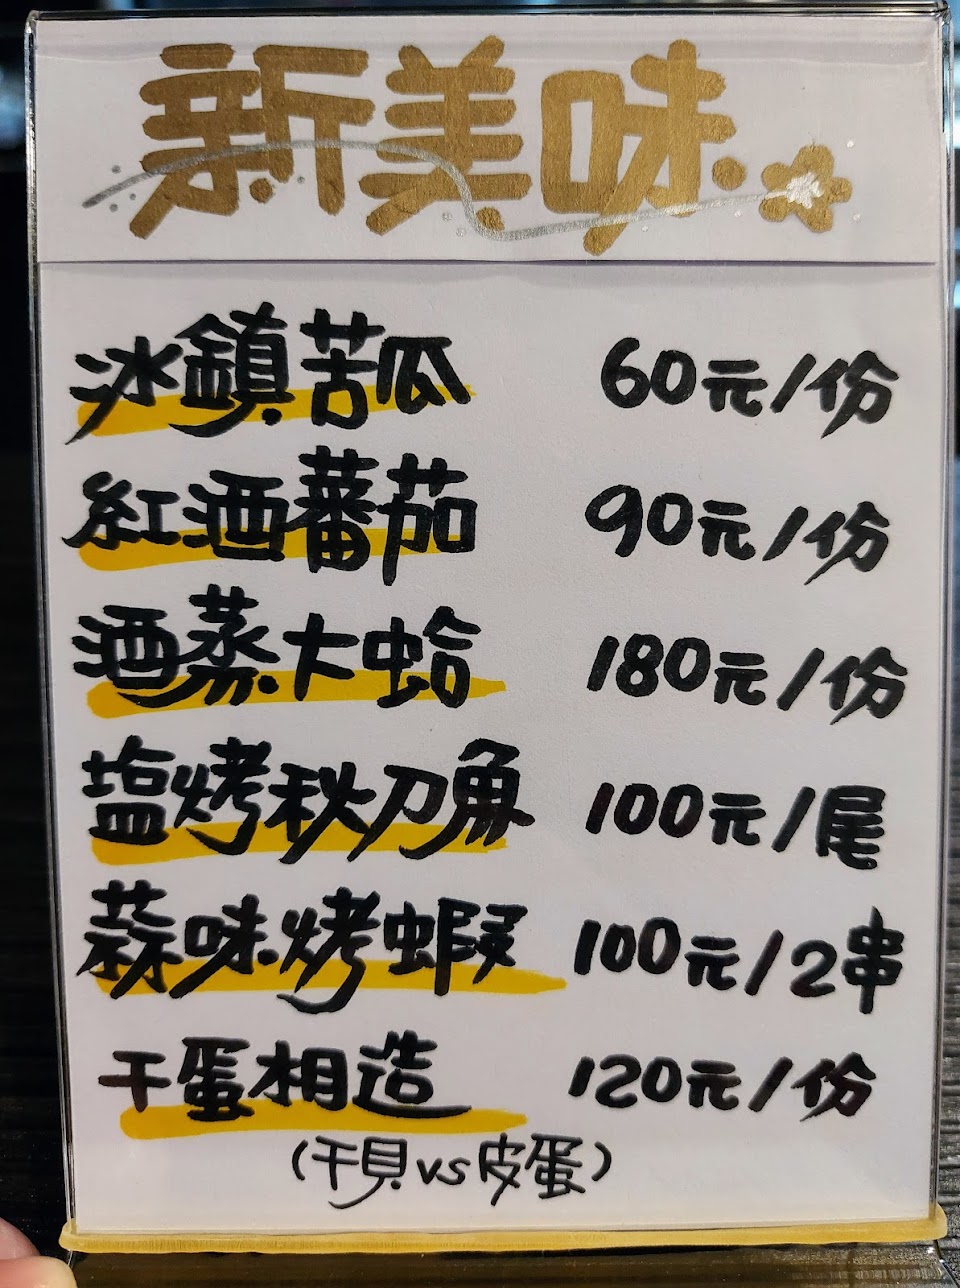 新美味
冰鎮苦瓜 60元/份
紅酒蕃茄 90元/份
酒蒸大蛤 180元/份
塩烤秋刀魚 100元/尾
蒜味烤蝦 100元/2串
干蛋相造 120元/份
(干貝vs皮蛋)